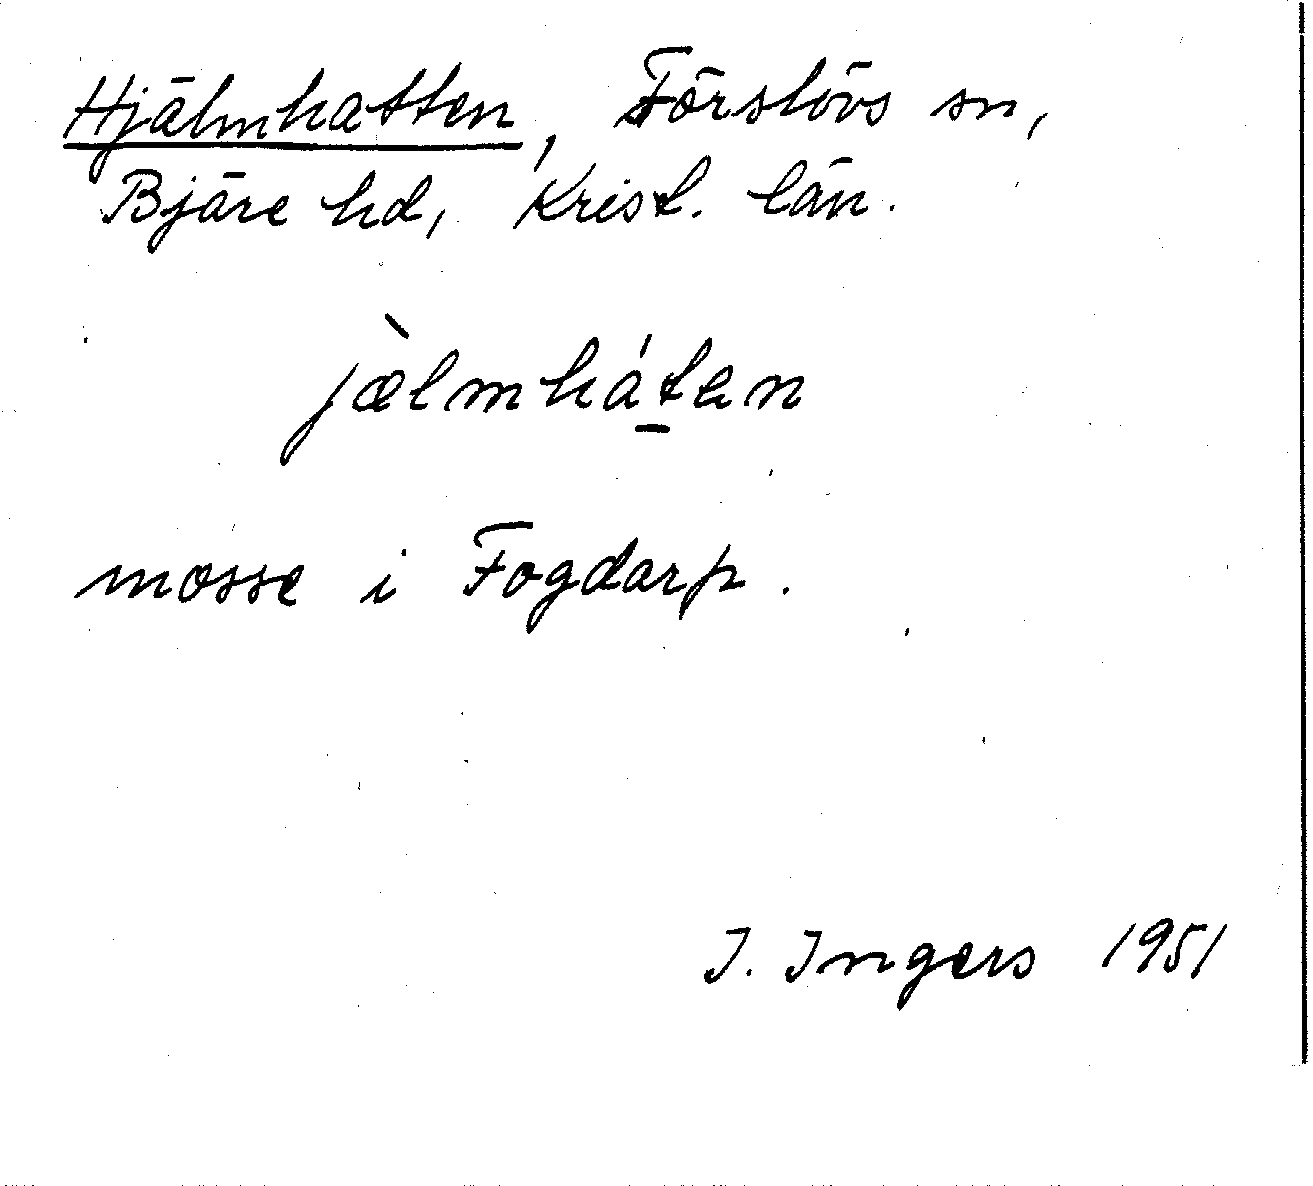 Hjälmhatten, Förslövs sn,
Bjäre hd, Krist. län.
jæ̀lmháten
mosse i Fogdarp.
I. Ingers 1951